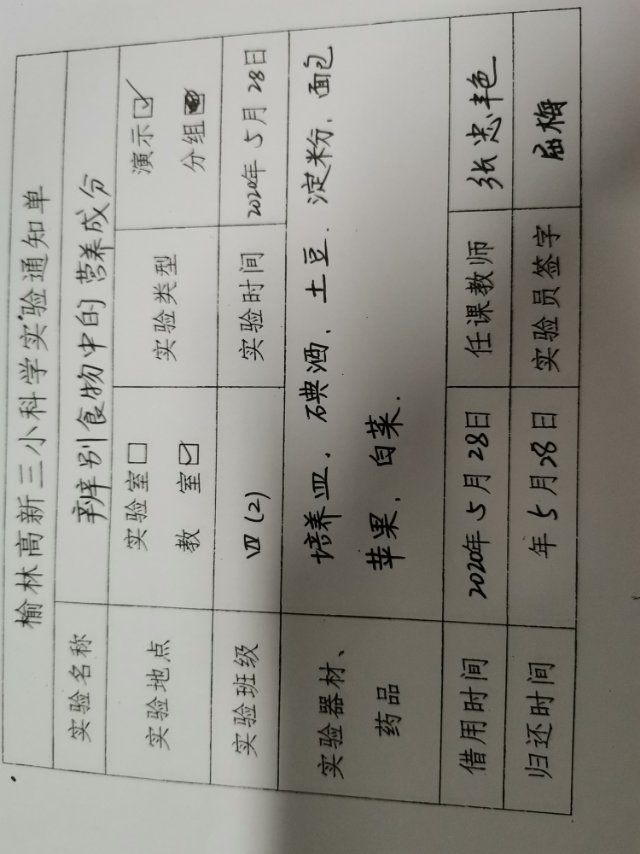 榆林高新三小科学实验通知单
实验名称 辨别食物中的营养成分
实验地点 实验室□ 教 室☑ 实验类型 演示☑ 分组☑
实验班级 四(2) 实验时间 2020年5月28日
实验器材、药品 培养皿、碘酒、土豆、淀粉、面包
苹果、白菜.
借用时间 2020年5月28日 任课教师 张忠艳
归还时间 年5月28日 实验员签字 屈梅